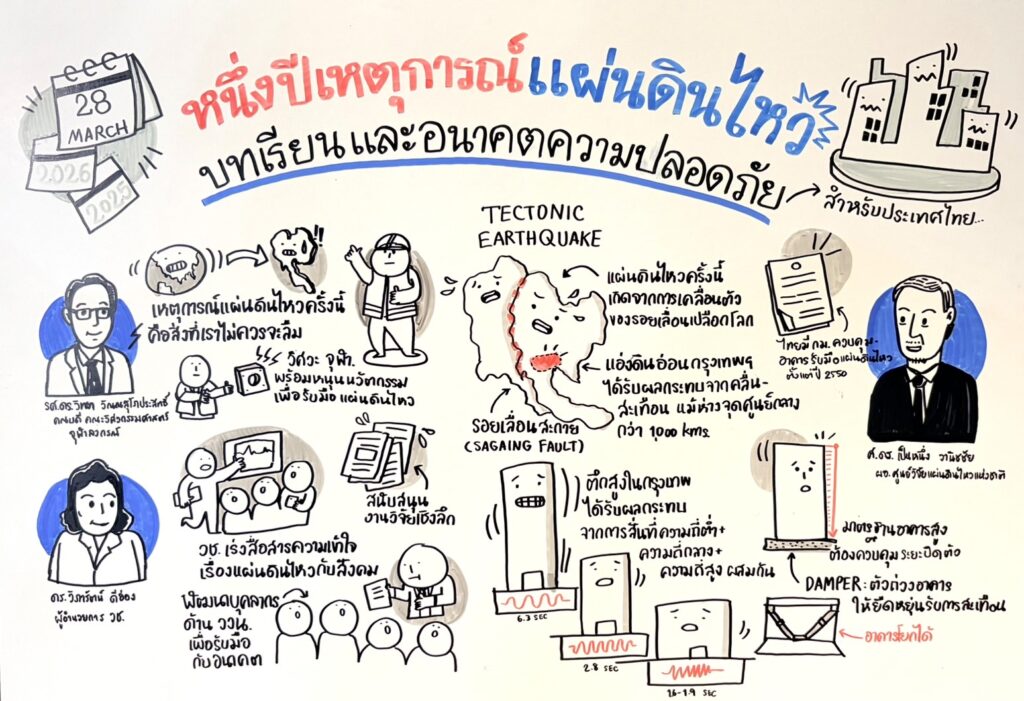 28
MARCH
2026
2025
หนึ่งปีเหตุการณ์แผ่นดินไหว
บทเรียนและอนาคตความปลอดภัย
สำหรับประเทศไทย...
เหตุการณ์แผ่นดินไหวครั้งนี้
คือสิ่งที่เราไม่ควรจะลืม
วิศวะ จุฬาฯ
พร้อมหนุนนวัตกรรม
เพื่อรับมือแผ่นดินไหว
รศ.ดร.วิทยา วัณณสุโภประสิทธิ์
คณบดี คณะวิศวกรรมศาสตร์
จุฬาลงกรณ์
สนับสนุน
งานวิจัยเชิงลึก
วช. เร่งสื่อสารความเข้าใจ
เรื่องแผ่นดินไหวกับสังคม
ดร.วิภารัตน์ ดีอ่อง
ผู้อำนวยการ วช.
พัฒนาบุคลากร
ด้าน ววน.
เพื่อรับมือ
กับอนาคต
TECTONIC
EARTHQUAKE
แผ่นดินไหวครั้งนี้
เกิดจากการเคลื่อนตัว
ของรอยเลื่อนเปลือกโลก
แอ่งดินอ่อนกรุงเทพฯ
ได้รับผลกระทบจากคลื่น-
สะเทือน แม้ห่างจุดศูนย์กลาง
กว่า 1,000 kms.
รอยเลื่อนสะกาย
(SAGAING FAULT)
ตึกสูงในกรุงเทพ
ได้รับผลกระทบ
จากการสั่นที่ความถี่ต่ำ+
ความถี่กลาง+
ความถี่สูง ผสมกัน
6.3 SEC
2.8 SEC
1.6-1.9 SEC
ไทยมี กม. ควบคุม-
อาคารรับมือแผ่นดินไหว
ตั้งแต่ปี 2550
ศ.ดร. เป็นหนึ่ง วานิชชัย
ผอ.ศูนย์วิจัยแผ่นดินไหวแห่งชาติ
มาตรฐานอาคารสูง
ต้องควบคุมระยะบิดตัว
DAMPER: ตัวถ่วงอาคาร
ให้ยืดหยุ่นรับการสะเทือน
อาคารโยกได้